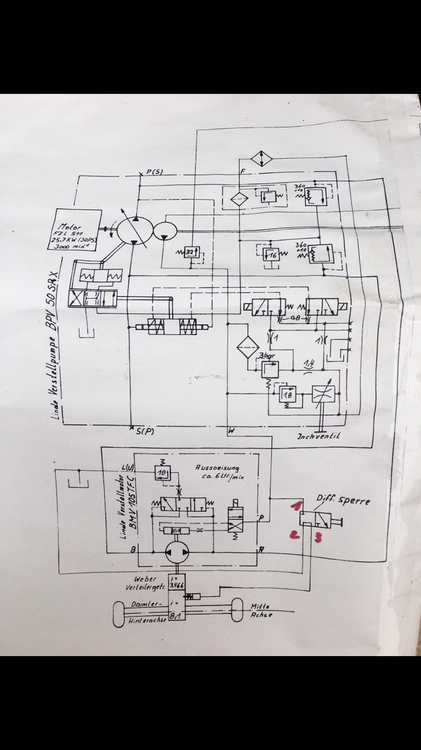 P(S)
F
Motor
F2L 511
25.7 KW (30PS)
3000 min⁻¹
Linde Verstellpumpe BPV 50 SRX
32
360
16
360
0.8
1
1
3bar
1.4
18
Inchventil
S(P)
W
L(U)
10
Ausspeisung
ca. 6 Ltr/min
Linde Verstellmotor
BMV 105 TFC
B
P
R
1
Diff. sperre
2
3
Weber
Verteilerget.
i=
3.966
Daimler-
Hinterachse
i=
8.1
Mitte
Achse